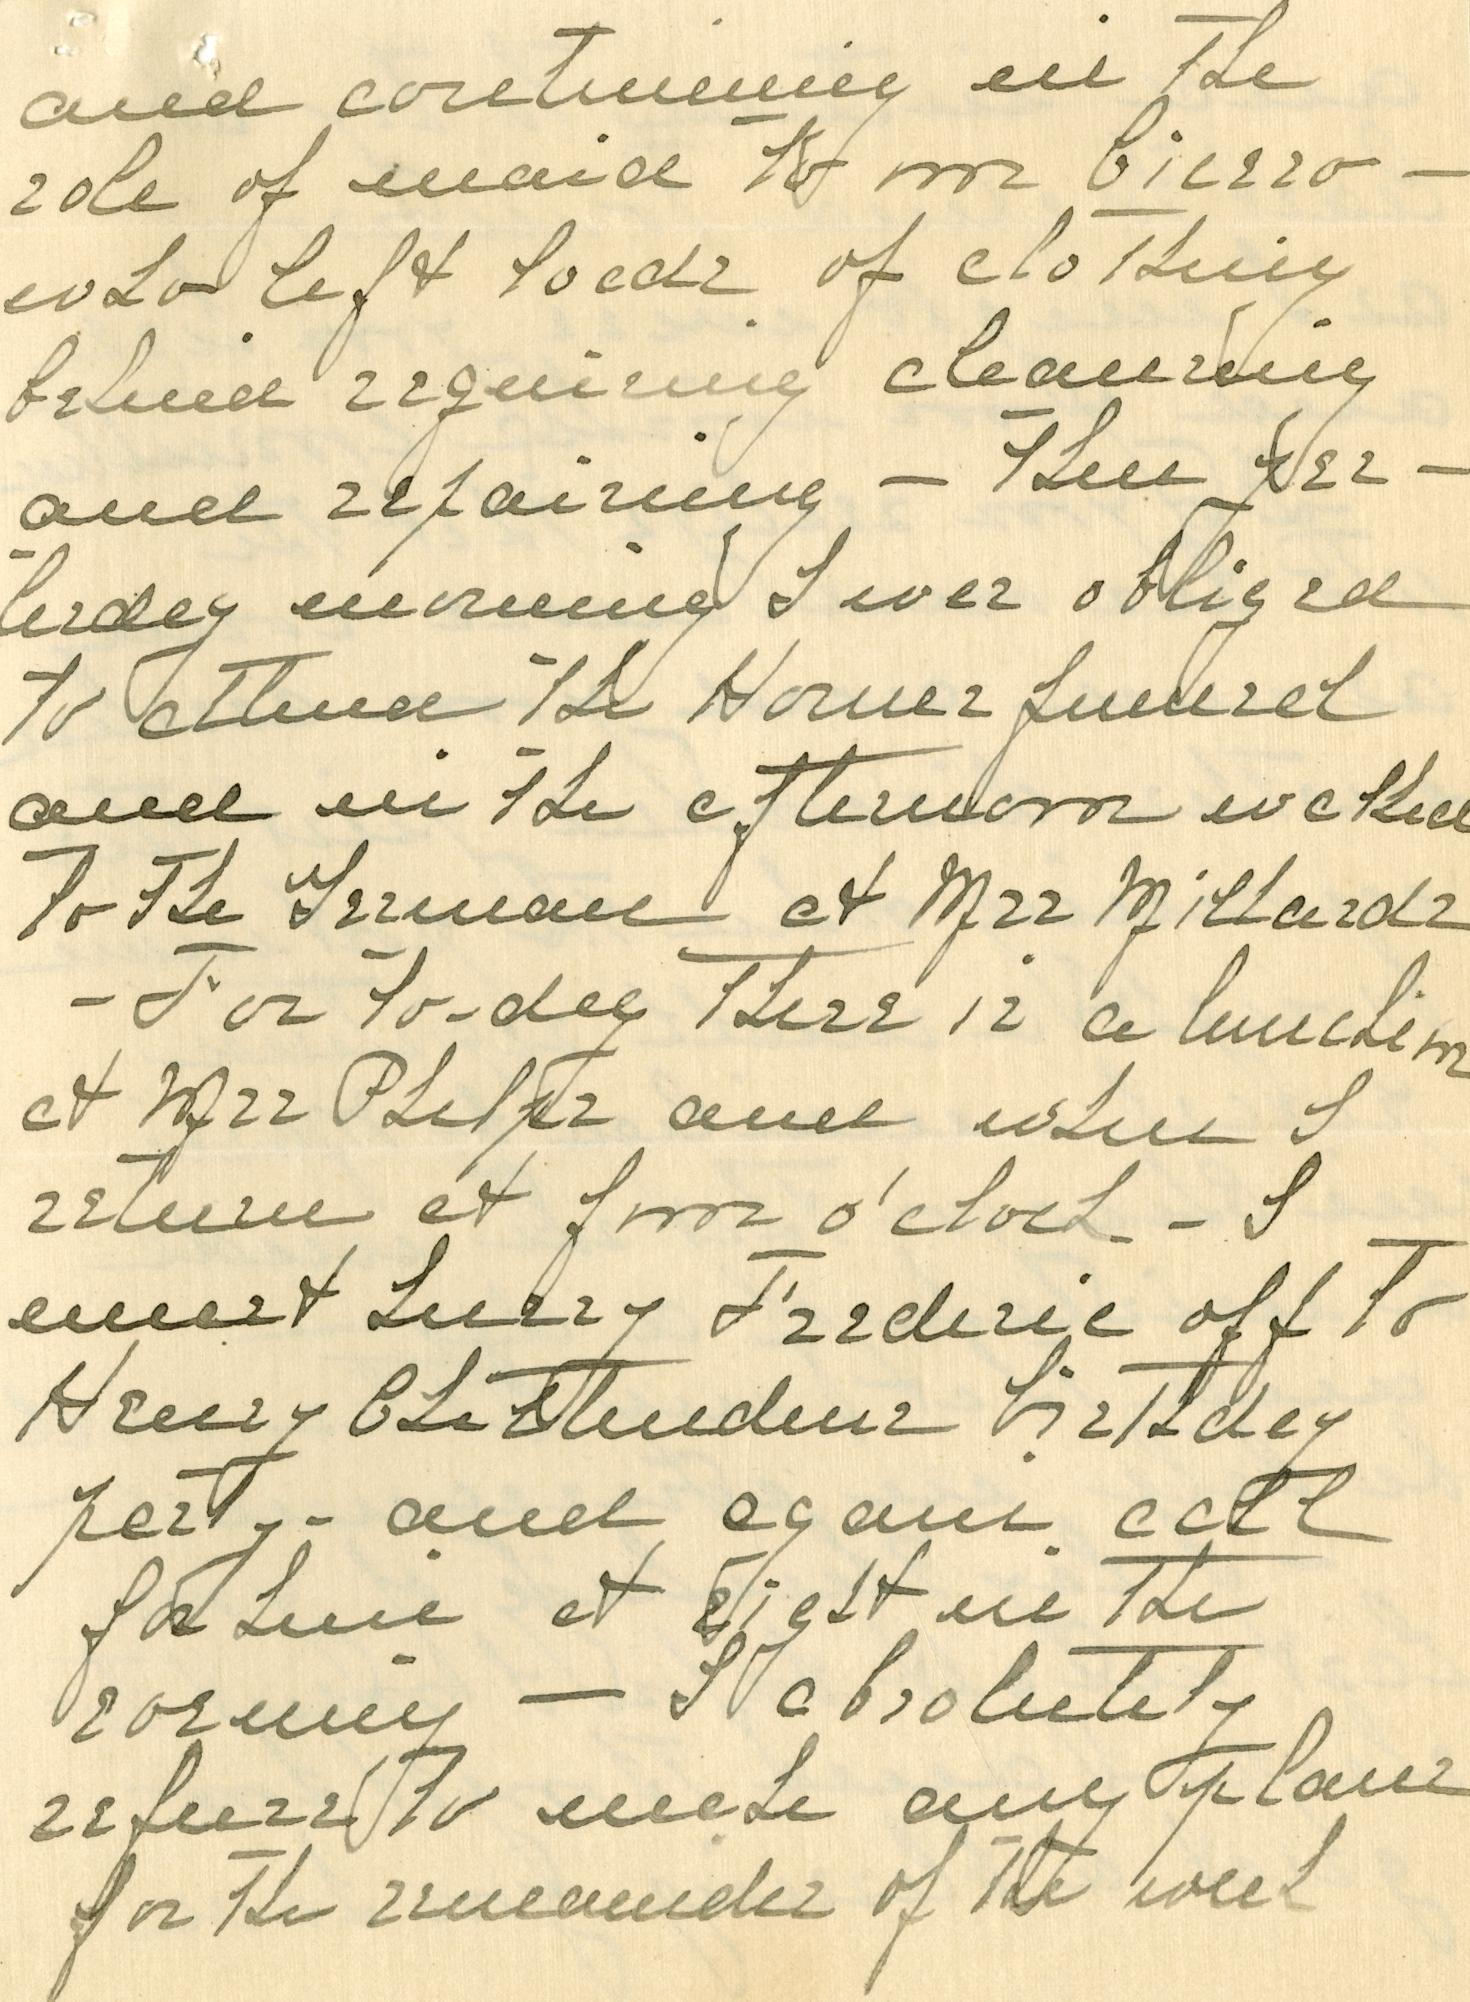 and continuing in the
role of maid to our Pierro –
who left loads of clothing
behind requiring cleaning
and repairing – Then yes –
terday morning I was obliged
to attend the Homer funeral
and in the afternoon walked
to the German at Mrs Millards
– For to-day there is a lunch
at Mrs Phelps and when I
return at four o'clock – I
must hurry Frederic off to
Henry Chittendens birthday
party – and again call
for him at eight in the
evening – I absolutely
refuse to make any plans
for the remainder of the week